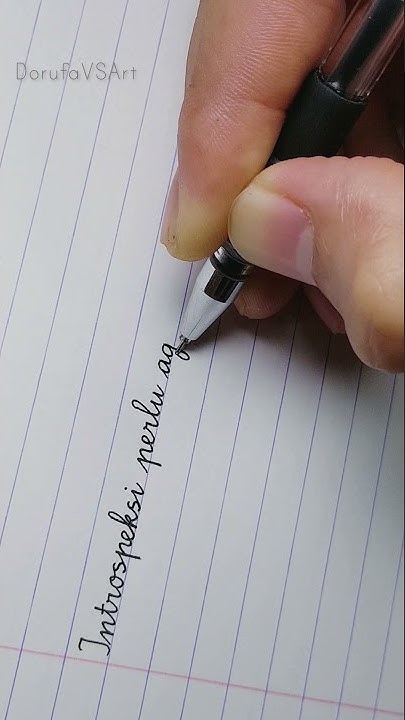 DorufaVSArt
Introspeksi perlu ag